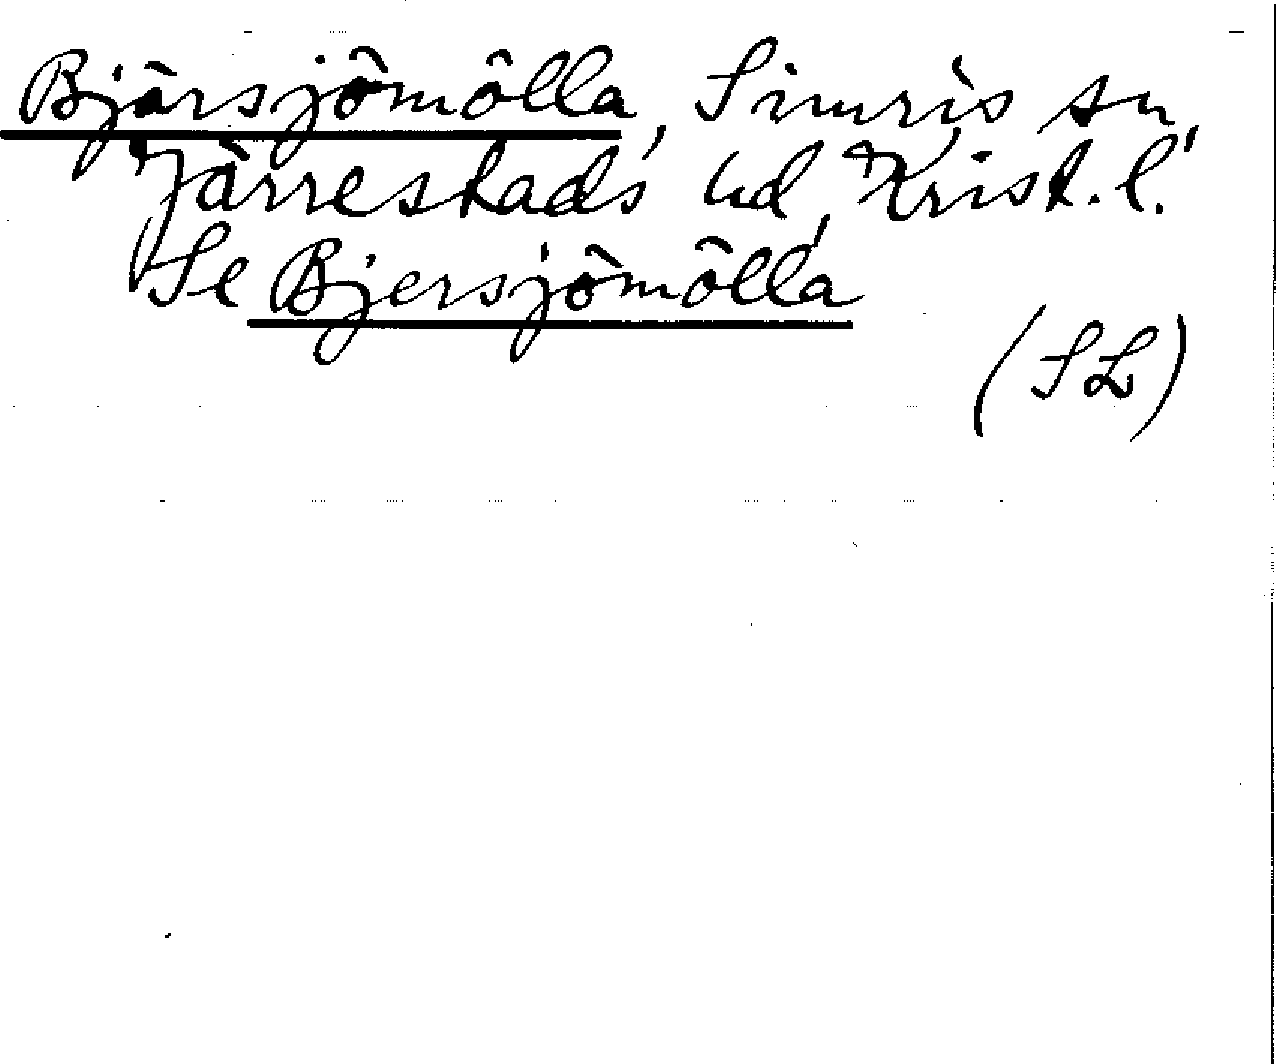 Bjärsjömölla, Simris sn,
Järrestads hd, Krist. l.
Se Bjersjömölla
(SL)